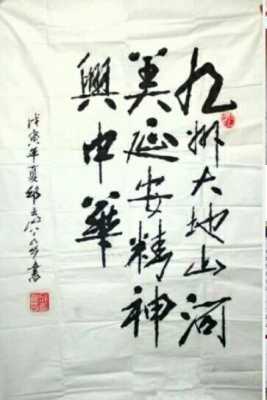 九州大地山河
美延安精神
興中華
戊寅年夏邱
書